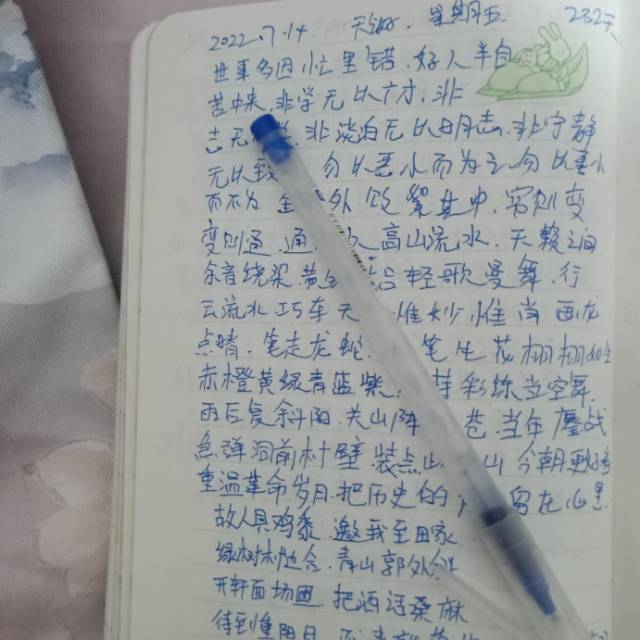 2022.7.14 星期五 232天
世事多因忙里错.好人半自
苦中来.非学无以广才.非
志无 非淡泊无以明志.非宁静
无以致 勿以恶小而为之勿以善小
而不为 外 其中.穷则变
变则通.通 久 高山流水.天籁之 
余音绕梁.黄 吕 轻歌曼舞.行
云流水 巧 天 惟妙惟肖 画龙
点睛.笔走龙蛇. 笔生花栩栩如生
赤橙黄绿青蓝紫. 持彩练当空舞.
雨后复斜阳.关山阵 苍.当年鏖战
急弹洞前村壁.装点 山 今朝
重温革命岁月.把历史的 留在心里.
故人具鸡黍.邀我至田家
绿树村边合.青山郭外斜
开轩面场圃 把酒话桑麻
待到重阳日